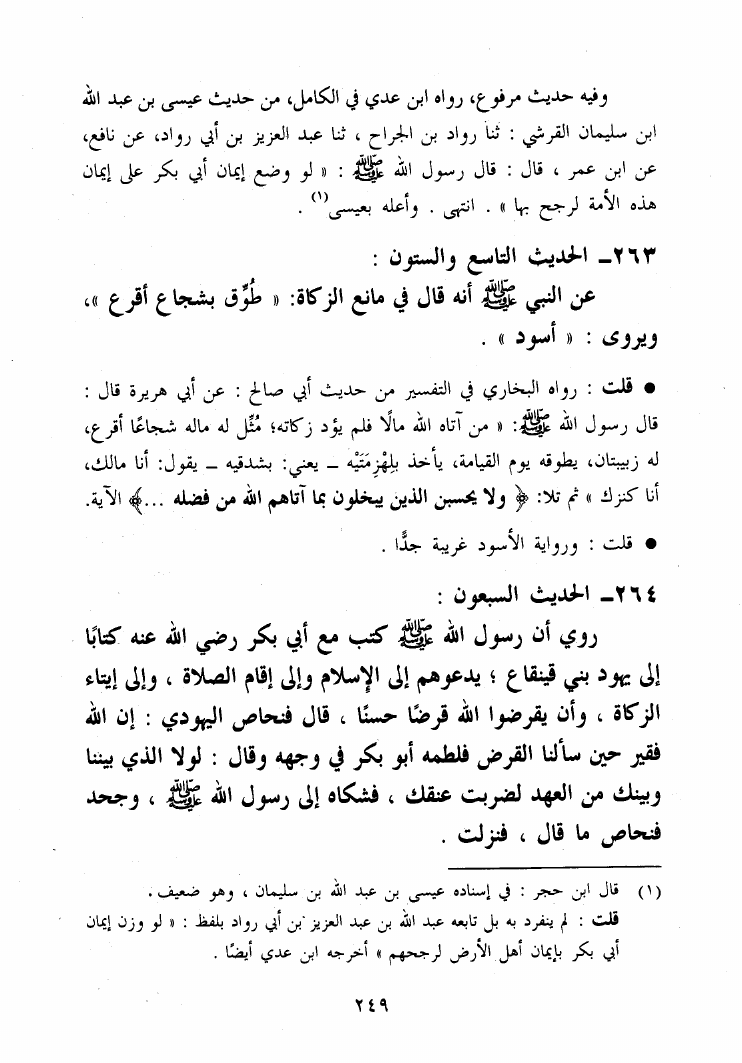 وفيه حديث مرفوع، رواه ابن عدي في الكامل، من حديث عيسى بن عبد الله
ابن سليمان القرشي : ثنا رواد بن الجراح ، ثنا عبد العزيز بن أبي رواد، عن نافع،
عن ابن عمر ، قال : قال رسول الله ﷺ : « لو وضع إيمان أبي بكر على إيمان
هذه الأمة لرجح بها » . انتهى . وأعله بعيسى(١) .
٢٦٣ـ الحديث التاسع والستون :
عن النبي ﷺ أنه قال في مانع الزكاة: « طُوِّق بشجاع أقرع »،
ويروى : « أسود » .
● قلت : رواه البخاري في التفسير من حديث أبي صالح : عن أبي هريرة قال :
قال رسول الله ﷺ: « من آتاه الله مالًا فلم يؤد زكاته؛ مُثِّل له ماله شجاعًا أقرع،
له زبيبتان، يطوقه يوم القيامة، يأخذ بلِهْزِمَتَيْه ـ يعني: بشدقيه ـ يقول: أنا مالك،
أنا كنزك » ثم تلا: ﴿ ولا يحسبن الذين يبخلون بما آتاهم الله من فضله ...﴾ الآية.
● قلت : ورواية الأسود غريبة جدًّا .
٢٦٤ـ الحديث السبعون :
روي أن رسول الله ﷺ كتب مع أبي بكر رضي الله عنه كتابًا
إلى يهود بني قينقاع ؛ يدعوهم إلى الإسلام وإلى إقام الصلاة ، وإلى إيتاء
الزكاة ، وأن يقرضوا الله قرضًا حسنًا ، قال فنحاص اليهودي : إن الله
فقير حين سألنا القرض فلطمه أبو بكر في وجهه وقال : لولا الذي بيننا
وبينك من العهد لضربت عنقك ، فشكاه إلى رسول الله ﷺ ، وجحد
فنحاص ما قال ، فنزلت .
(١) قال ابن حجر : في إسناده عيسى بن عبد الله بن سليمان ، وهو ضعيف.
قلت : لم ينفرد به بل تابعه عبد الله بن عبد العزيز بن أبي رواد بلفظ : « لو وزن إيمان
أبي بكر بإيمان أهل الأرض لرجحهم » أخرجه ابن عدي أيضًا .
٢٤٩